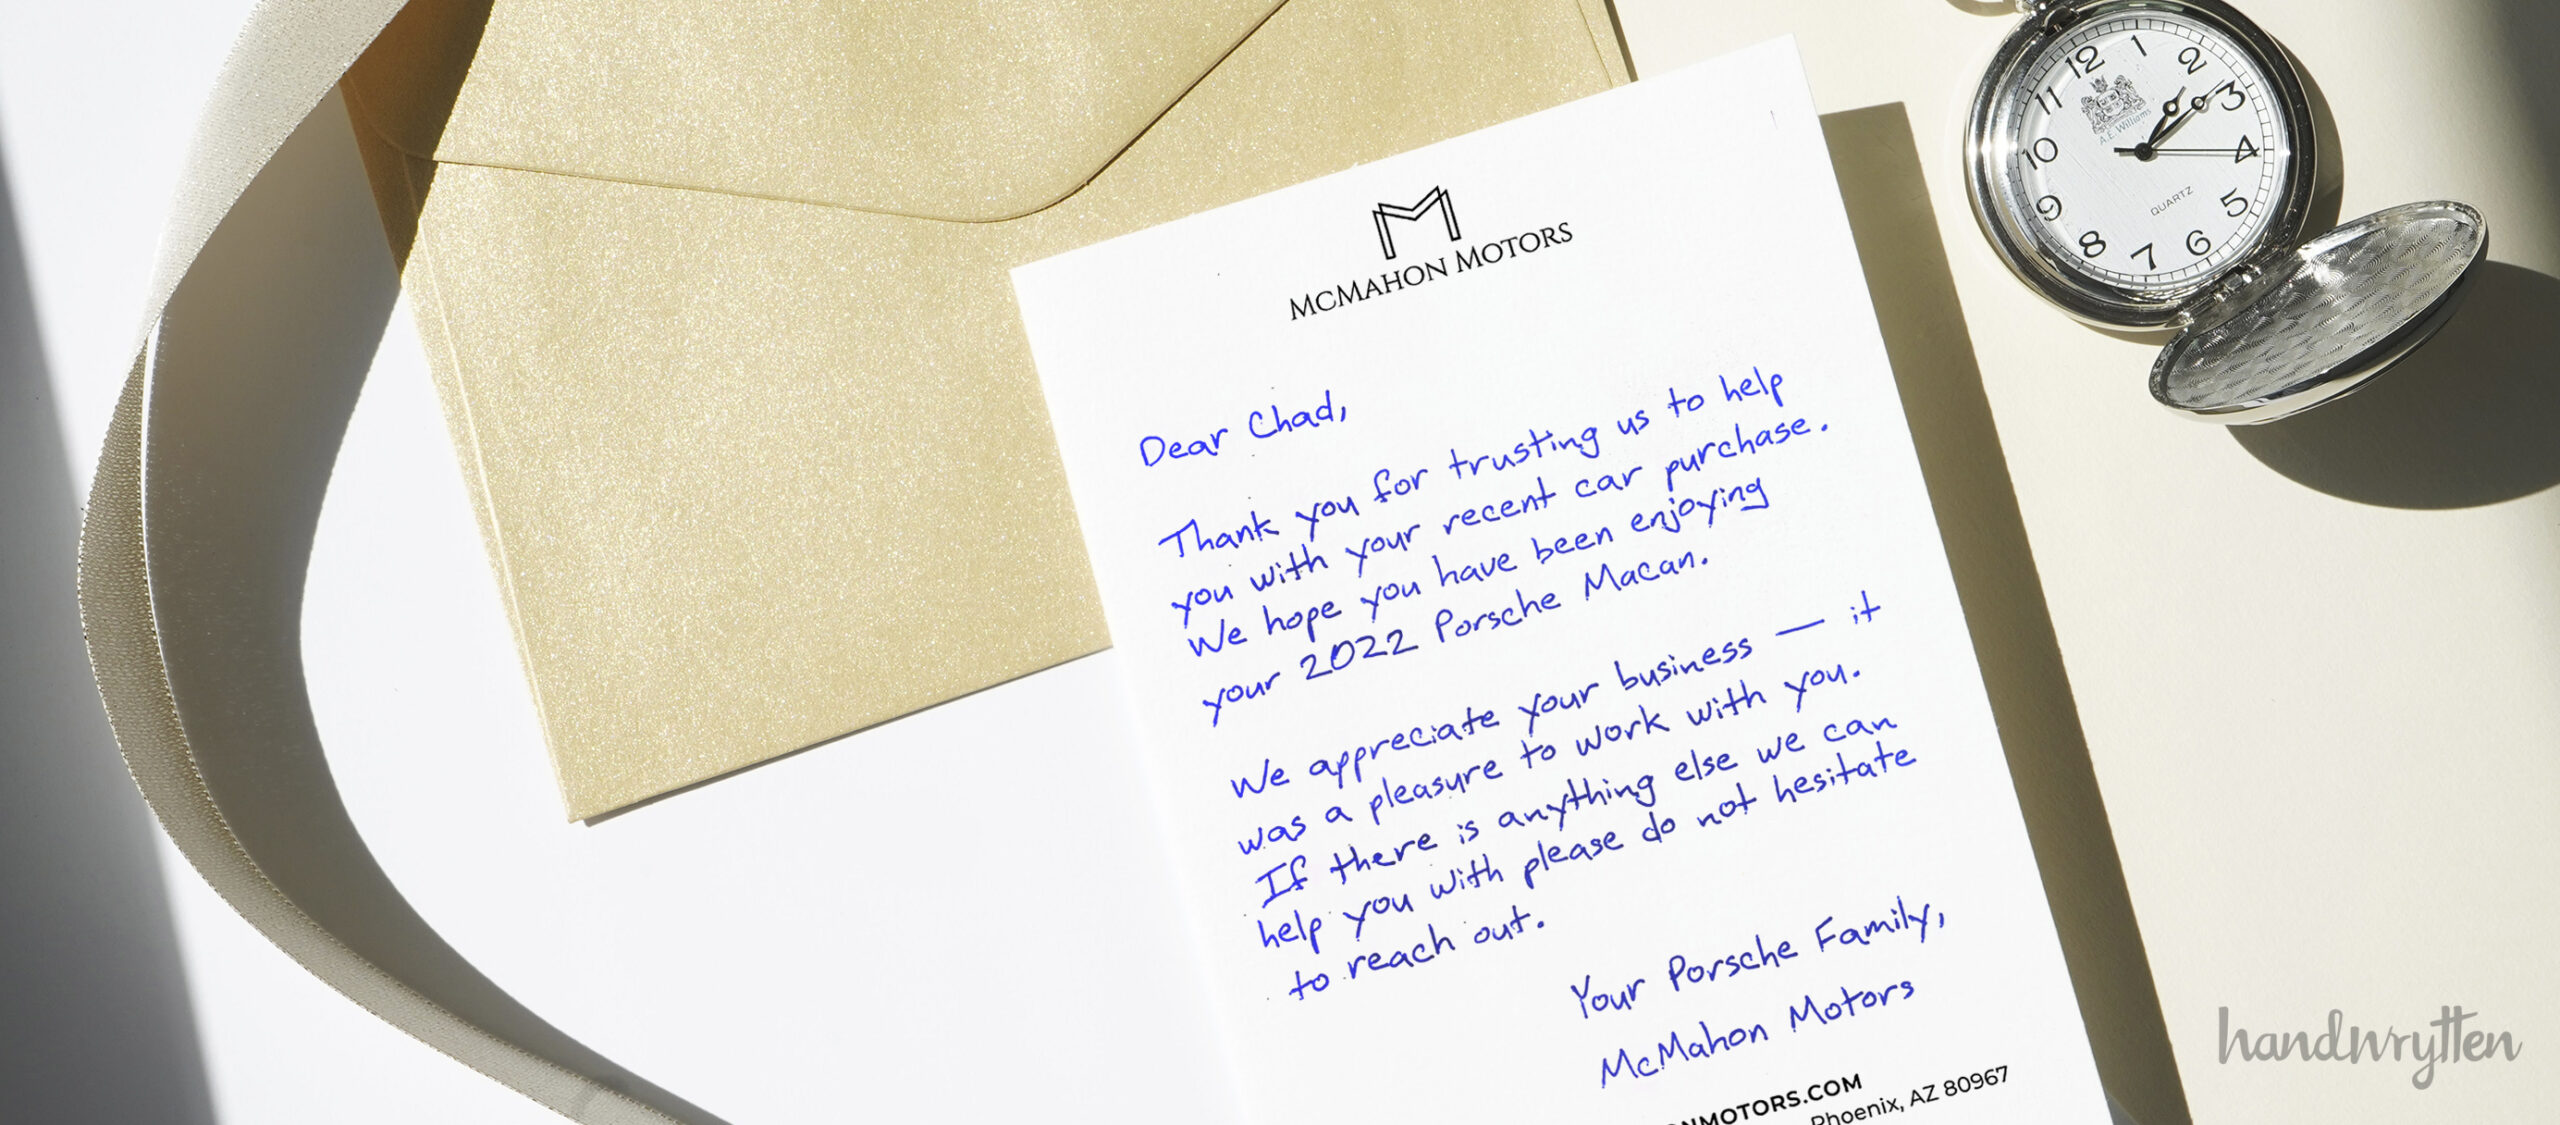 McMahon Motors
Dear Chad,
Thank you for trusting us to help
you with your recent car purchase.
We hope you have been enjoying
your 2022 Porsche Macan.
We appreciate your business — it
was a pleasure to work with you.
If there is anything else we can
help you with please do not hesitate
to reach out.
Your Porsche Family,
McMahon Motors
NMOTORS.COM
Phoenix, AZ 80967
12 1 2 3 4 5 6 7 8 9 10 11
A.E. Williams
QUARTZ
handwrytten